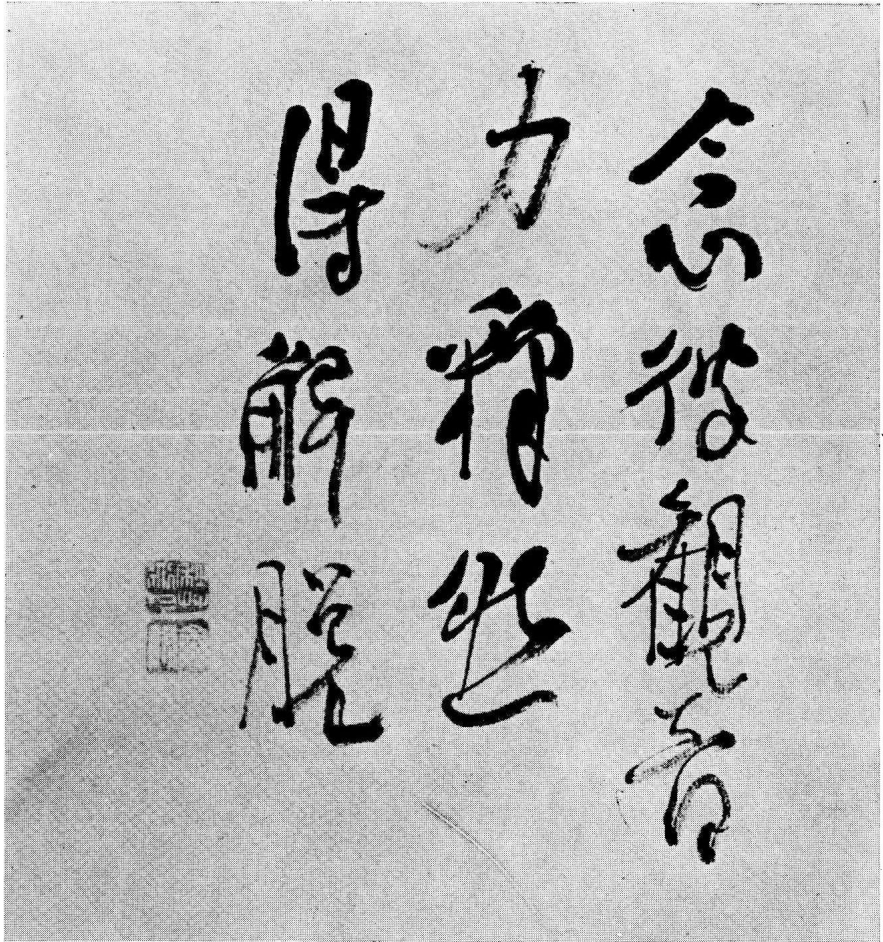 念彼観音
力釋然
得解脱